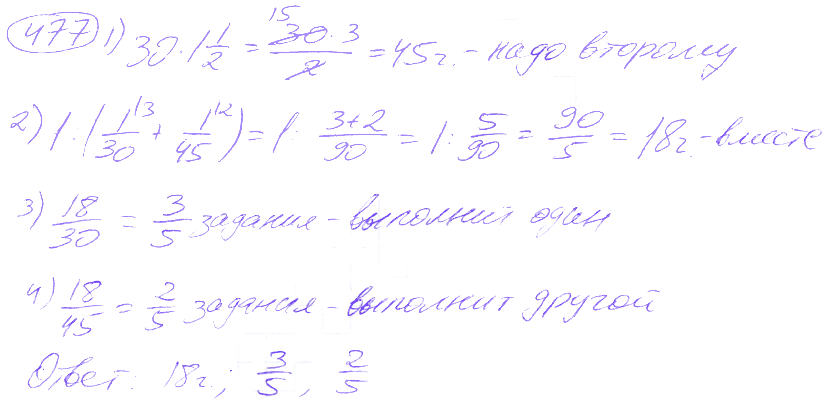 477 1) 30 · 1 1/2 = 15 30 · 3 / 2 = 45 г. - надо второму
2) 1 : (1/30 \3 + 1/45 \2) = 1 : 3+2/90 = 1 : 5/90 = 90/5 = 18 г. - вместе
3) 18/30 = 3/5 задания - выполнит один
4) 18/45 = 2/5 задания - выполнит другой
Ответ: 18 г.; 3/5, 2/5